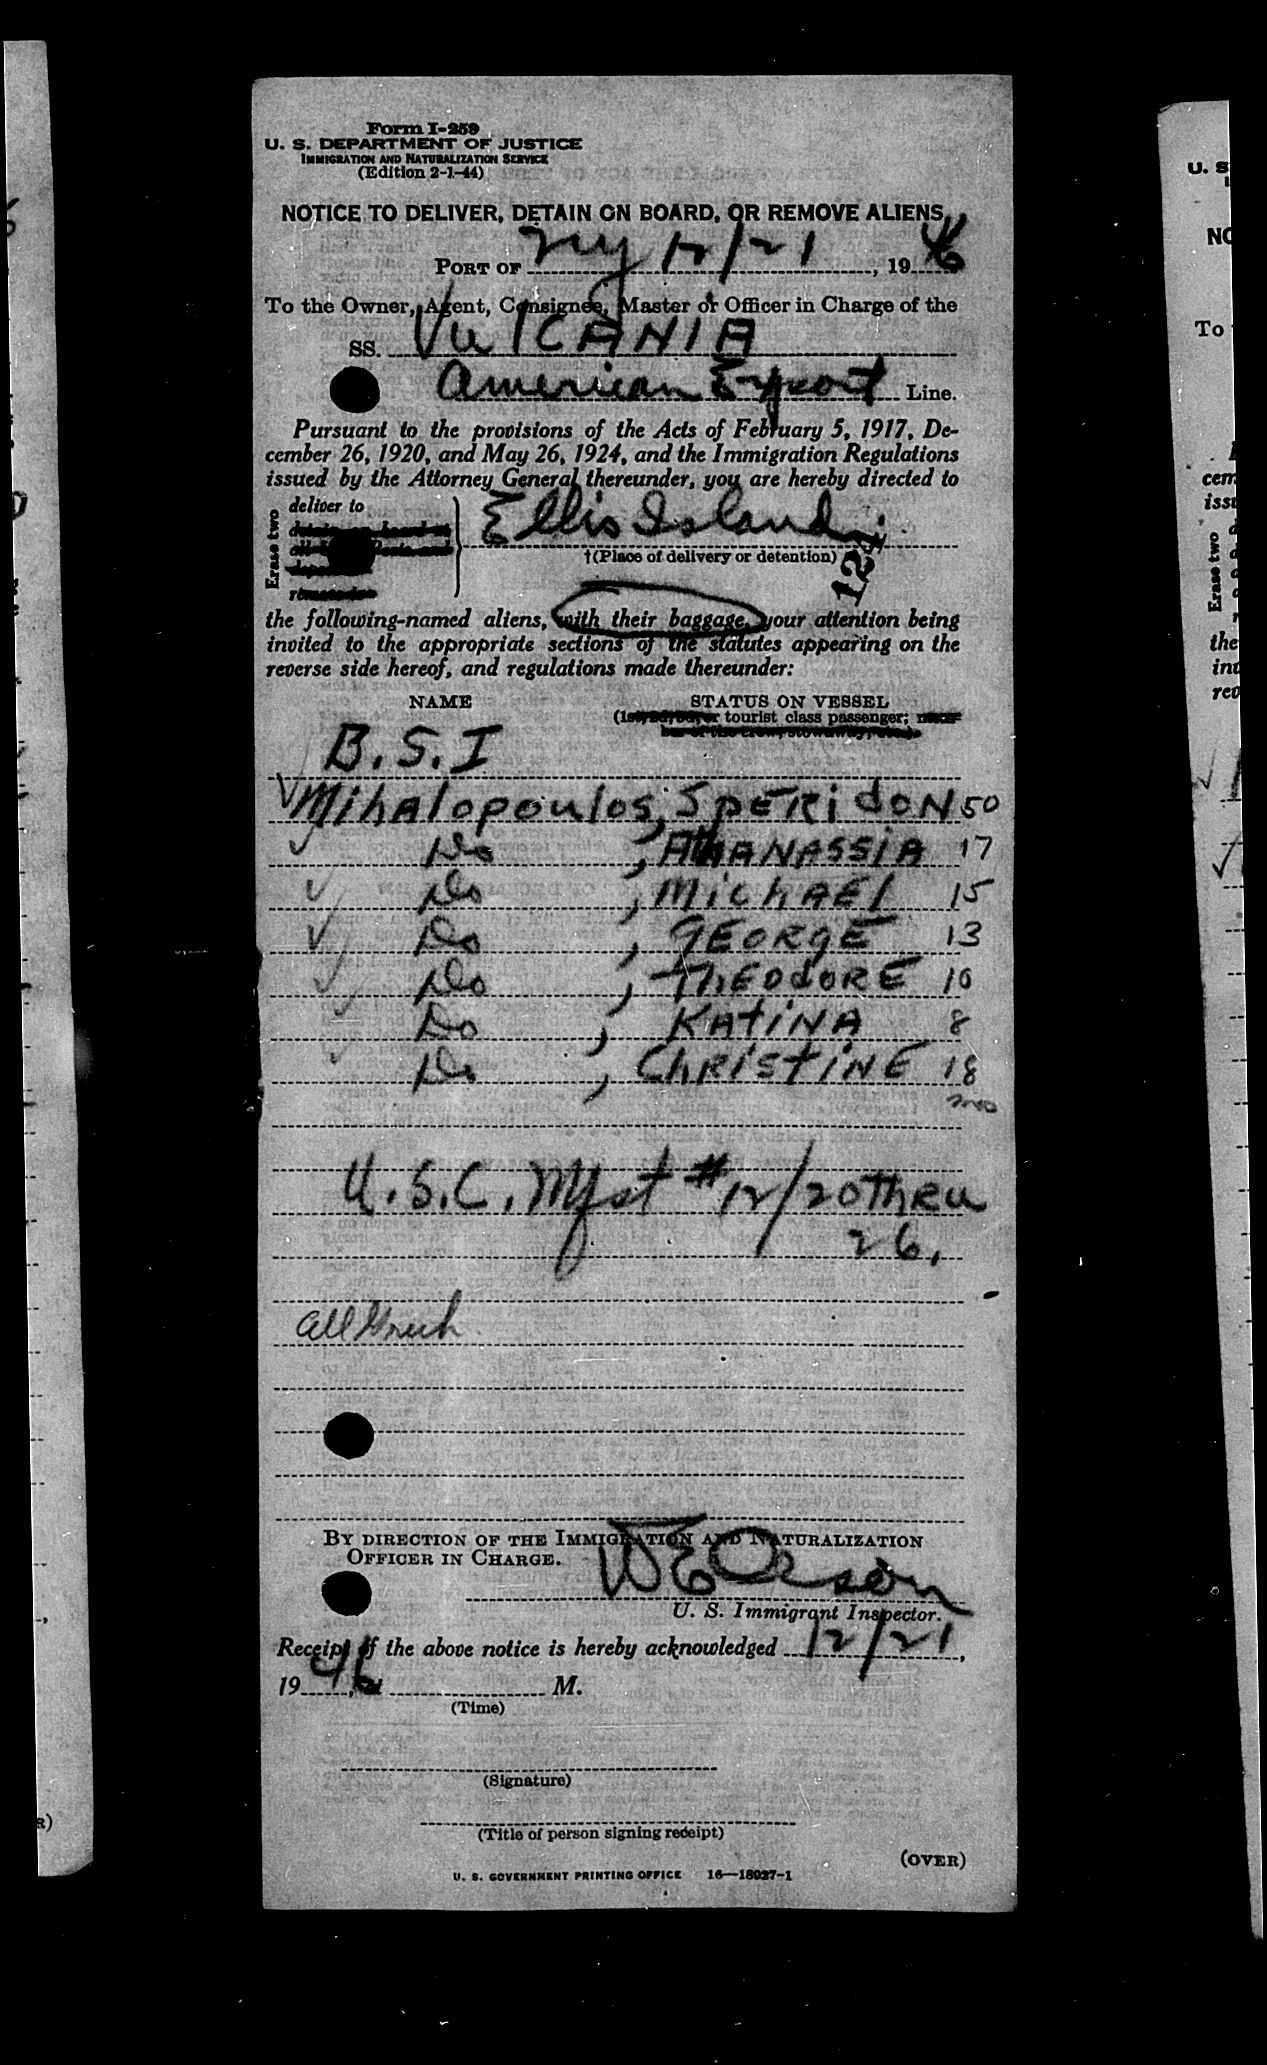 Form I-259
U. S. DEPARTMENT OF JUSTICE
IMMIGRATION AND NATURALIZATION SERVICE
(Edition 2-1-44)
NOTICE TO DELIVER, DETAIN ON BOARD, OR REMOVE ALIENS
PORT OF NY 12/21, 1946
To the Owner, Agent, Consignee, Master or Officer in Charge of the
SS. VulCANIA
American Export Line.
Pursuant to the provisions of the Acts of February 5, 1917, De-
cember 26, 1920, and May 26, 1924, and the Immigration Regulations
issued by the Attorney General thereunder, you are hereby directed to
Erase two
deliver to
Ellis Island
†(Place of delivery or detention)
121
the following-named aliens, with their baggage, your attention being
invited to the appropriate sections of the statutes appearing on the
reverse side hereof, and regulations made thereunder:
NAME STATUS ON VESSEL
or tourist class passenger;
B.S.I
Mihalopoulos, SpERidoN 50
Do , AthANASSiA 17
Do , MichAEl 15
Do , GEORgE 13
Do , ThEOdORE 10
Do , KAtiNA 8
Do , ChRistiNE 18
mos
U.S.C. Mfst # 12/20 thRu
26.
all Greek
BY DIRECTION OF THE IMMIGRATION AND NATURALIZATION
OFFICER IN CHARGE.
U. S. Immigrant Inspector.
Receipt of the above notice is hereby acknowledged 12/21,
1946, at M.
(Time)
(Signature)
(Title of person signing receipt)
(OVER)
U. S. GOVERNMENT PRINTING OFFICE 16—18027-1